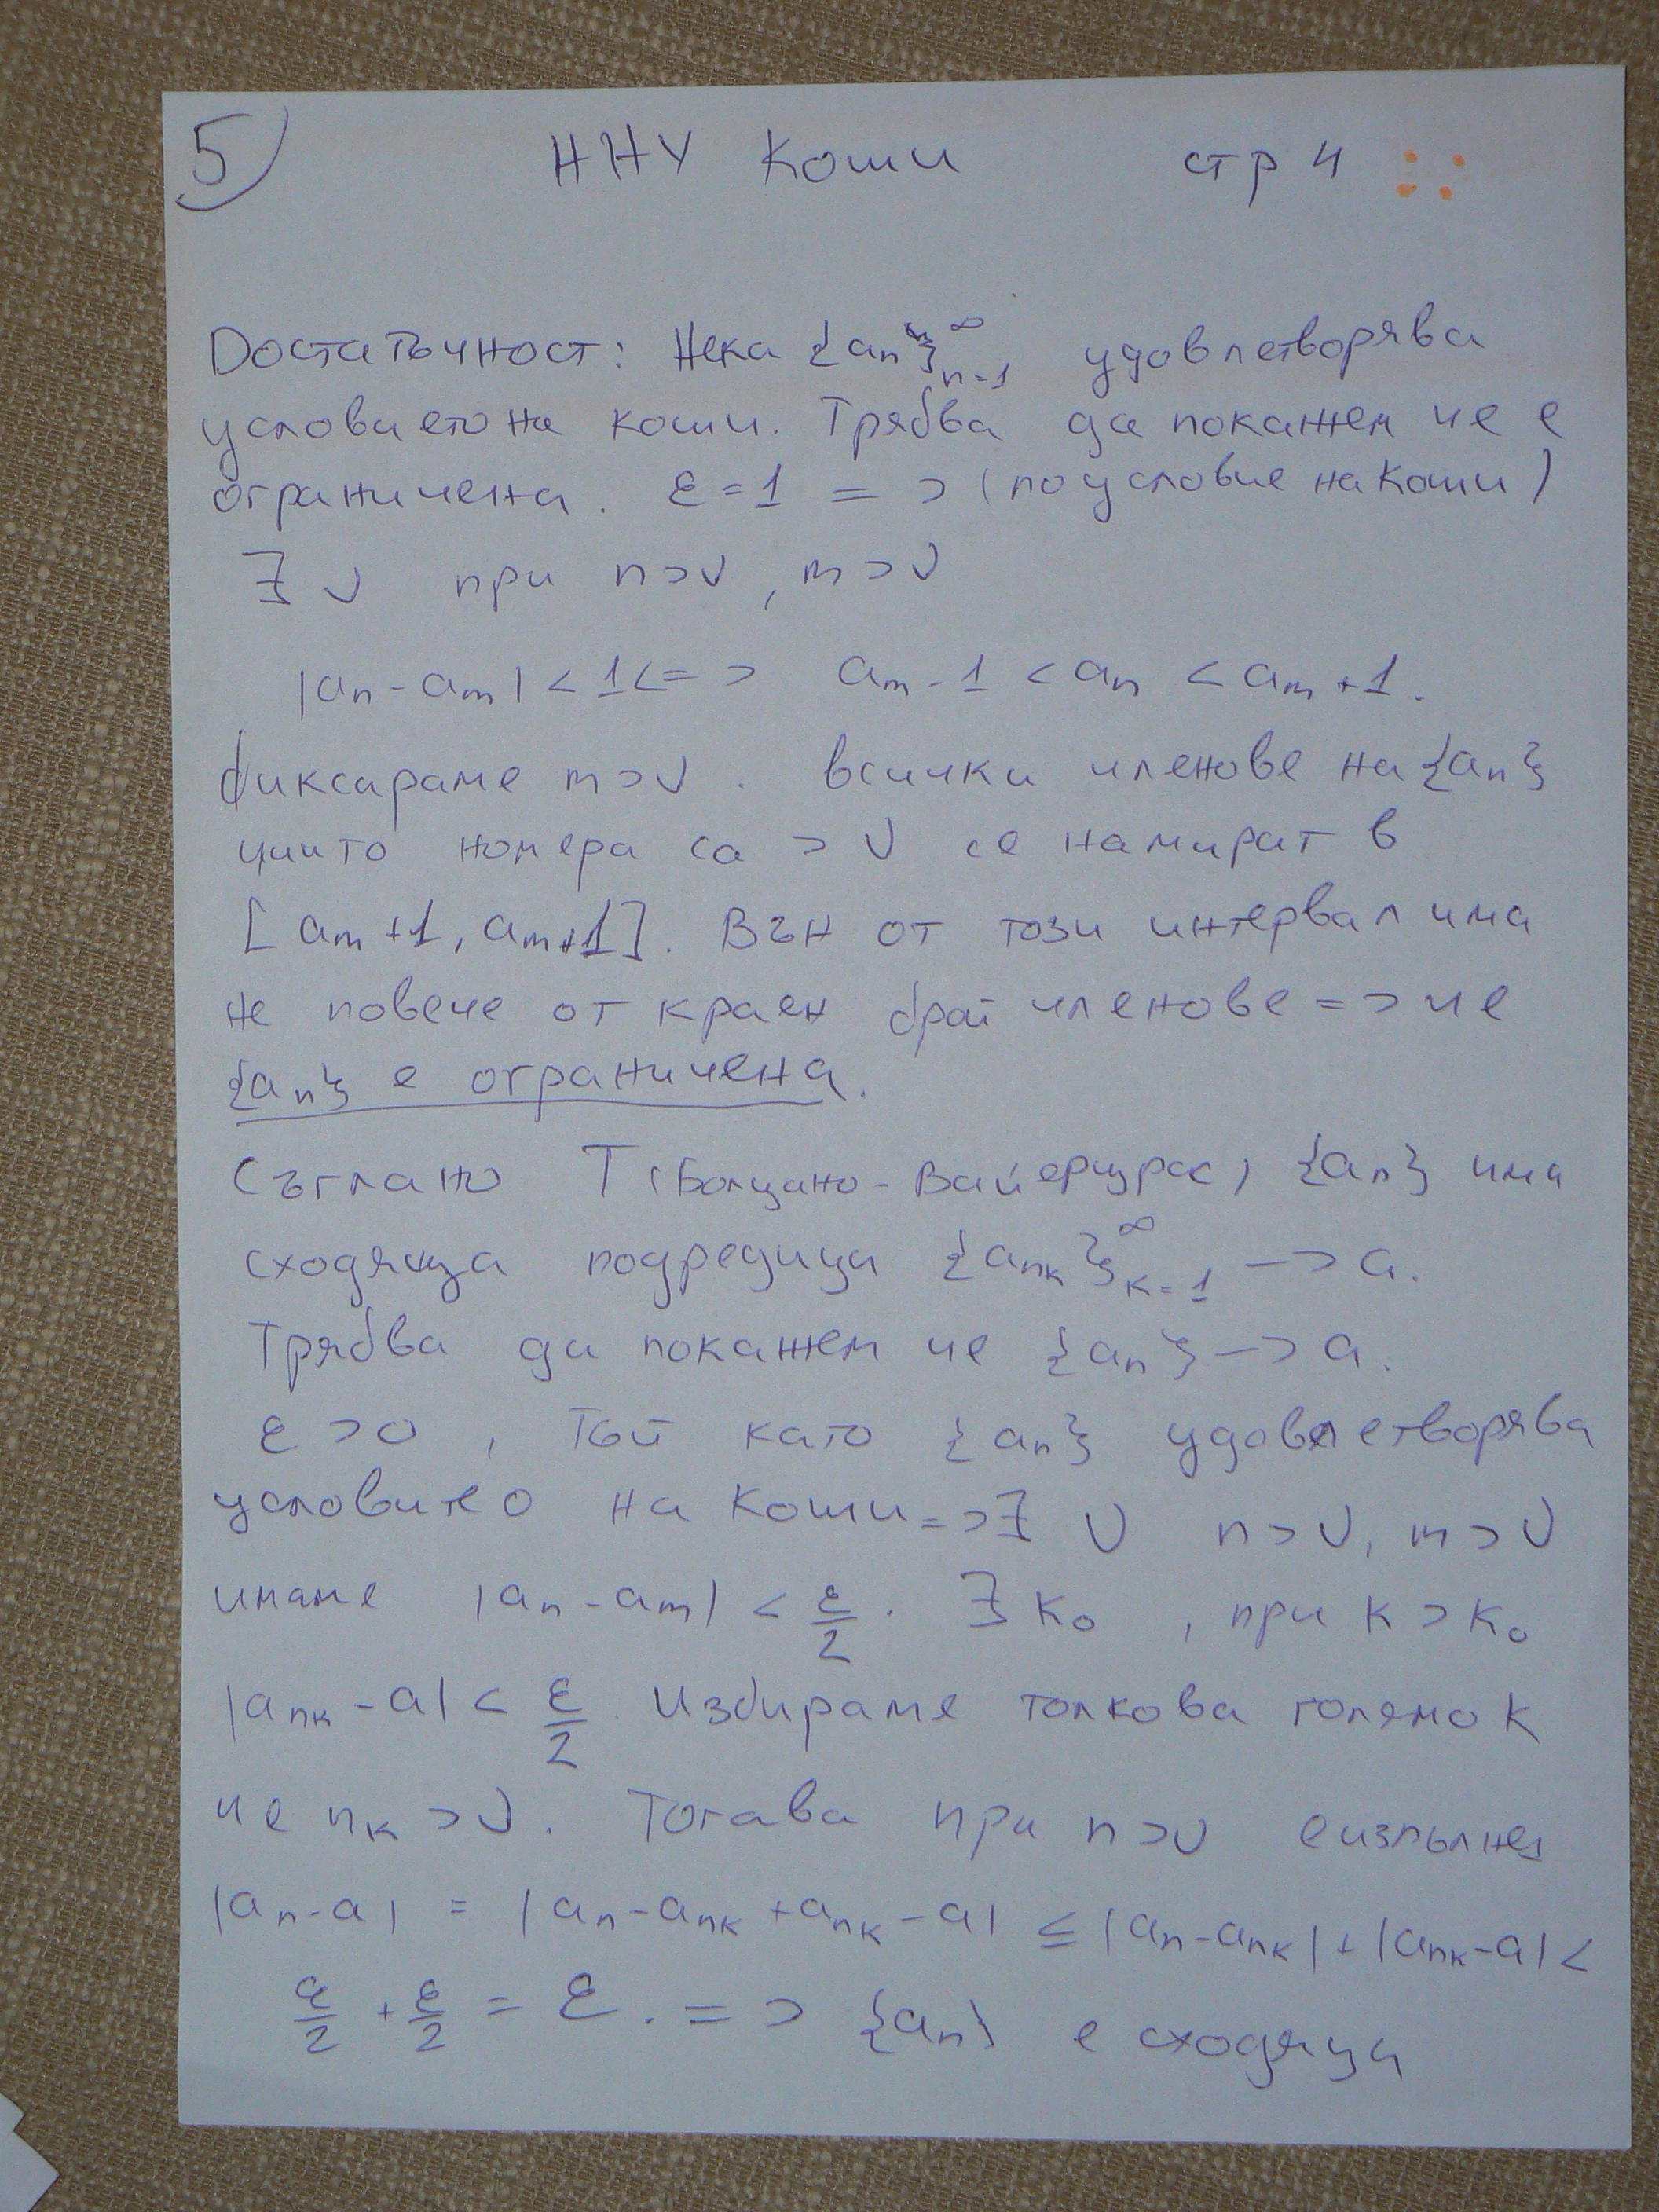 5) ННУ Коши стр 4
Достатъчност: Нека {aₙ}ₙ₌₁^∞ удовлетворява
условието на коши. Трябва да покажем че е
ограничена. ε = 1 => (по условие на Коши)
∃ ν при n > ν, m > ν
|aₙ - aₘ| < 1 <=> aₘ - 1 < aₙ < aₘ + 1.
фиксираме m > ν. всички членове на {aₙ}
чиито номера са > ν се намират в
[aₘ + 1, aₘ + 1]. Вън от този интервал има
не повече от краен брой членове => че
{aₙ} е ограничена.
Съглано Т (Болцано - Вайерщрас) {aₙ} има
сходяща подредица {aₙₖ}ₖ₌₁^∞ -> a.
Трябва да покажем че {aₙ} -> a.
ε > 0, Тъй като {aₙ} удовлетворява
условието на Коши => ∃ ν n > ν, m > ν
имаме |aₙ - aₘ| < ε/2. ∃ k₀, при k > k₀
|aₙₖ - a| < ε/2. Избираме толкова голямо k
че nₖ > ν. Тогава при n > ν е изпълнен
|aₙ - a| = |aₙ - aₙₖ + aₙₖ - a| ≤ |aₙ - aₙₖ| + |aₙₖ - a| <
ε/2 + ε/2 = ε. => {aₙ} е сходяща